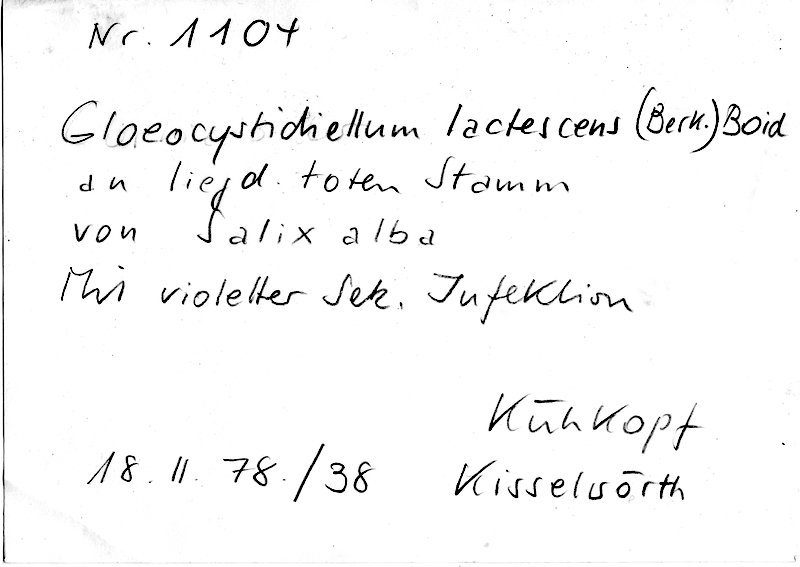 Nr. 1104
Gloeocystidiellum lactescens (Berk.) Boid
an liegd. toten Stamm
von Salix alba
Mit violetter Sek. Infektion
Kühkopf
18. II. 78. / 38 Kisselwörth